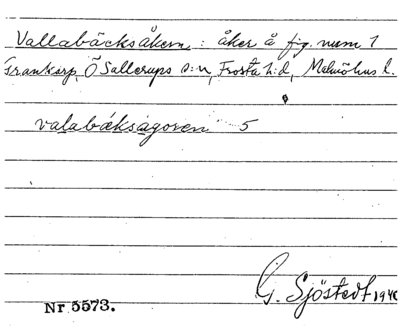 Vallabäcksåkern : åker å fig. num 1
Trankärp, Ö Sallerups s:n, Frosta h:d, Malmöhus l.
valabäksagoren 5
G. Sjöstedt 1940
Nr 5573.